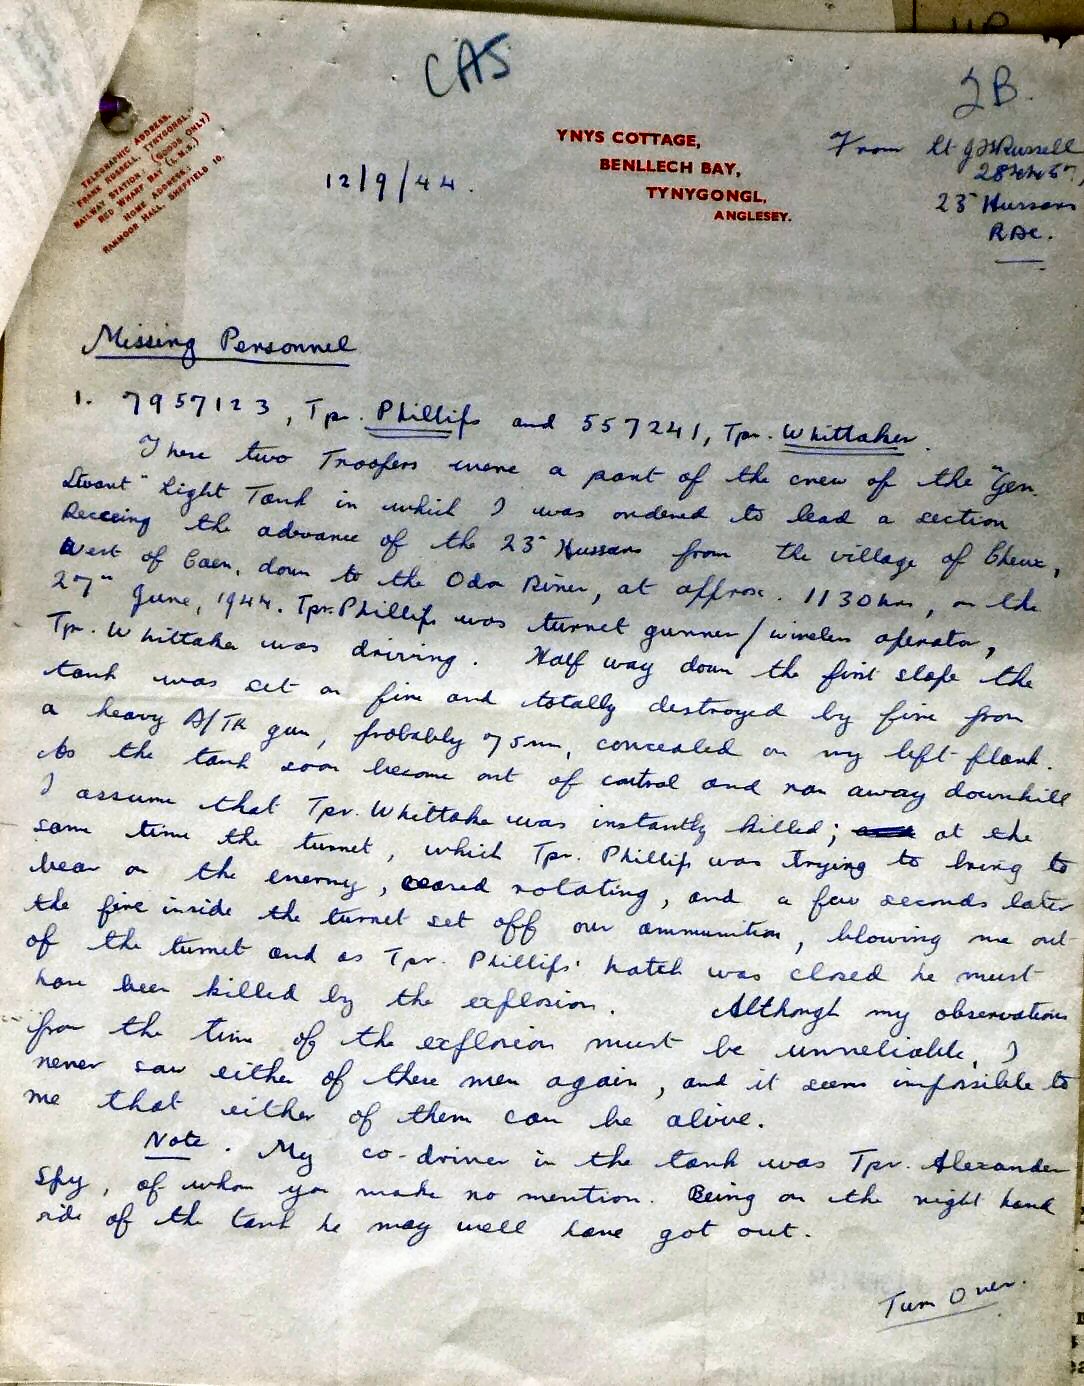 CAS
2B.
TELEGRAPHIC ADDRESS.
"FRANK RUSSELL, TYNYGONGL."
RAILWAY STATION: (GOODS ONLY)
RED WHARF BAY (L.M.S.)
HOME ADDRESS:
RANMOOR HALL, SHEFFIELD 10.
12/9/44.
YNYS COTTAGE,
BENLLECH BAY,
TYNYGONGL,
ANGLESEY.
From Lt J Russell
23 Hussars
RAC.
Missing Personnel
1. 7957123, Tpr. Phillips and 557241, Tpr. Whittaker.
These two Troopers were a part of the crew of the "Gen.
Stuart" Light Tank in which I was ordered to lead a section
Recceing the advance of the 23 Hussars from the village of Cheux,
West of Caen, down to the Odon River, at approx. 1130 hrs, on the
27th June, 1944. Tpr. Phillips was turret gunner/wireless operator,
Tpr. Whittaker was driving. Half way down the first slope the
tank was set on fire and totally destroyed by fire from
a heavy A/TK gun, probably 75mm, concealed on my left flank.
As the tank soon became out of control and ran away downhill
I assume that Tpr. Whittaker was instantly killed; at the
same time the turret, which Tpr. Phillips was trying to bring to
bear on the enemy, ceased rotating, and a few seconds later
the fire inside the turret set off our ammunition, blowing me out
of the turret and as Tpr. Phillips' hatch was closed he must
have been killed by the explosion. Although my observations
from the time of the explosion must be unreliable, I
never saw either of these men again, and it seems impossible to
me that either of them can be alive.
Note. My co-driver in the tank was Tpr. Alexander
Spy, of whom you make no mention. Being on the right hand
side of the tank he may well have got out.
Turn Over.